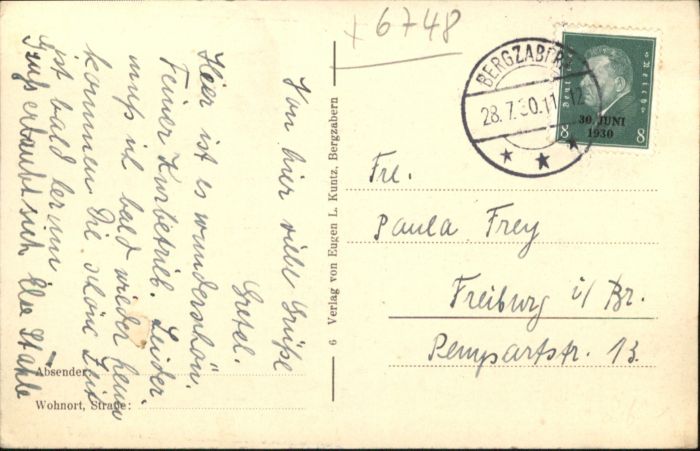 + 6748
Von hier viele Grüße
Gretel.
Hier ist es wunderschön.
Feiner Kurbetrieb. Leider
muss ich bald wieder heim
kommen Die schöne Zeit
ist bald herum
Gruß erlaubt sich Else Stähle
Absender:
Wohnort, Straße:
6 Verlag von Eugen L. Kuntz, Bergzabern
BERGZABERN
28.7.30.11-12
30. JUNI
1930
8 8
Frl.
Paula Frey
Freiburg i/Br.
Rempartstr. 13.